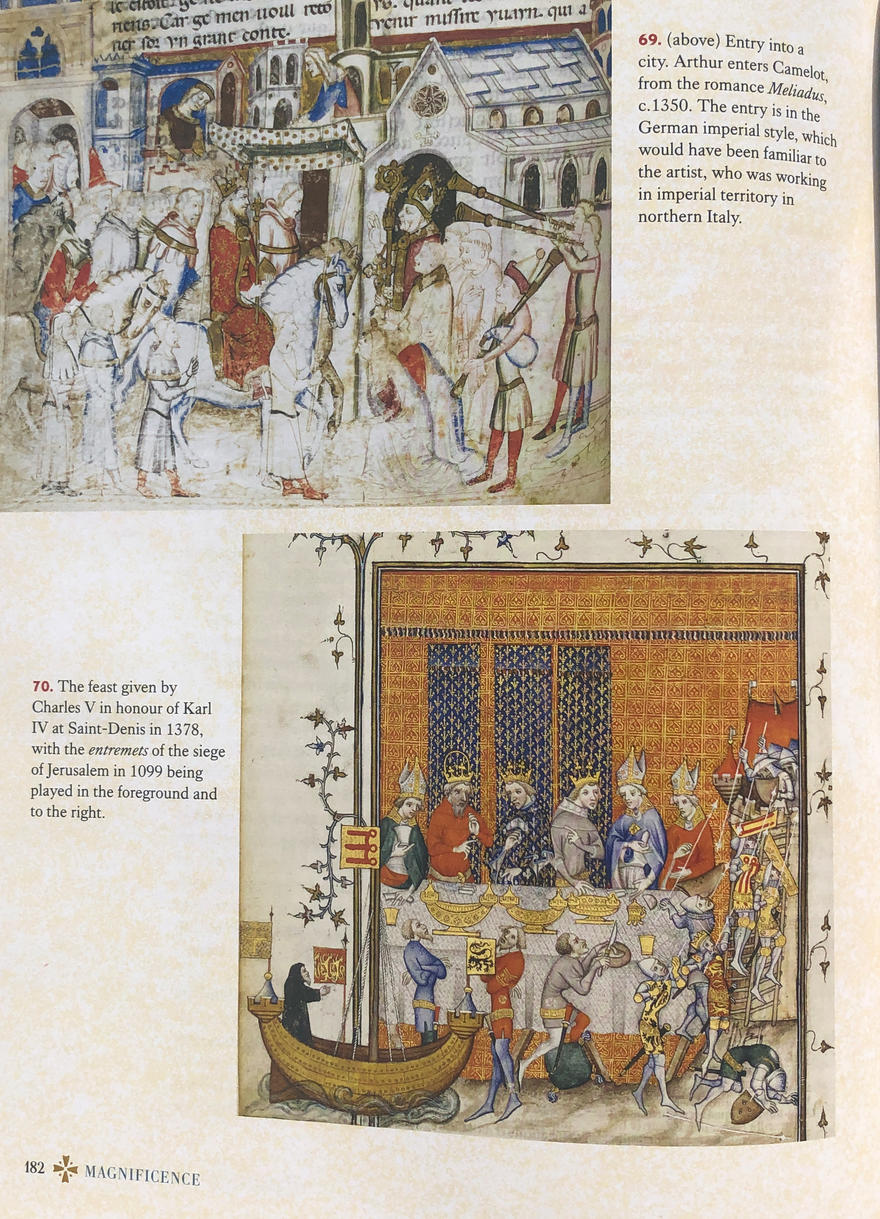 riens. Car ge men vouil
ner sor vn grant conte.
venir missire yuayn. qui a
69. (above) Entry into a
city. Arthur enters Camelot,
from the romance Meliadus,
c.1350. The entry is in the
German imperial style, which
would have been familiar to
the artist, who was working
in imperial territory in
northern Italy.
70. The feast given by
Charles V in honour of Karl
IV at Saint-Denis in 1378,
with the entremets of the siege
of Jerusalem in 1099 being
played in the foreground and
to the right.
182 MAGNIFICENCE